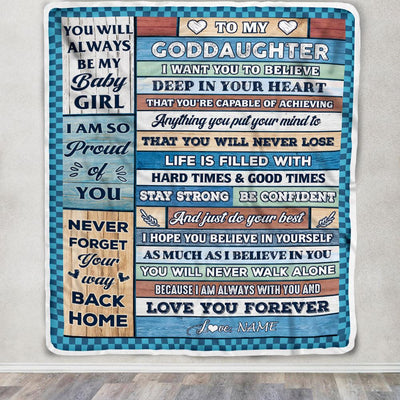 YOU WILL
ALWAYS
BE MY
Baby
GIRL
I AM SO
Proud
of
YOU
NEVER
FORGET
Your
way
BACK
HOME
TO MY
GODDAUGHTER
I WANT YOU TO BELIEVE
DEEP IN YOUR HEART
THAT YOU'RE CAPABLE OF ACHIEVING
Anything you put your mind to
THAT YOU WILL NEVER LOSE
LIFE IS FILLED WITH
HARD TIMES & GOOD TIMES
STAY STRONG BE CONFIDENT
And just do your best
I HOPE YOU BELIEVE IN YOURSELF
AS MUCH AS I BELIEVE IN YOU
YOU WILL NEVER WALK ALONE
BECAUSE I AM ALWAYS WITH YOU AND
LOVE YOU FOREVER
Love, NAME